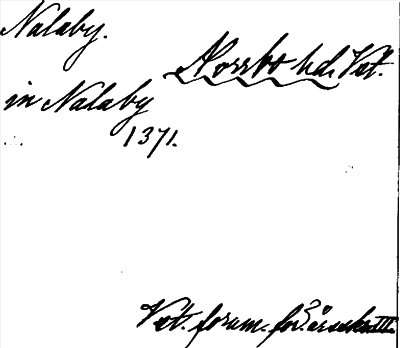 Nalaby.
Norrbo hd. Vst.
in Nalaby
1371.
Vst. fornm.-för:s årsskr. III